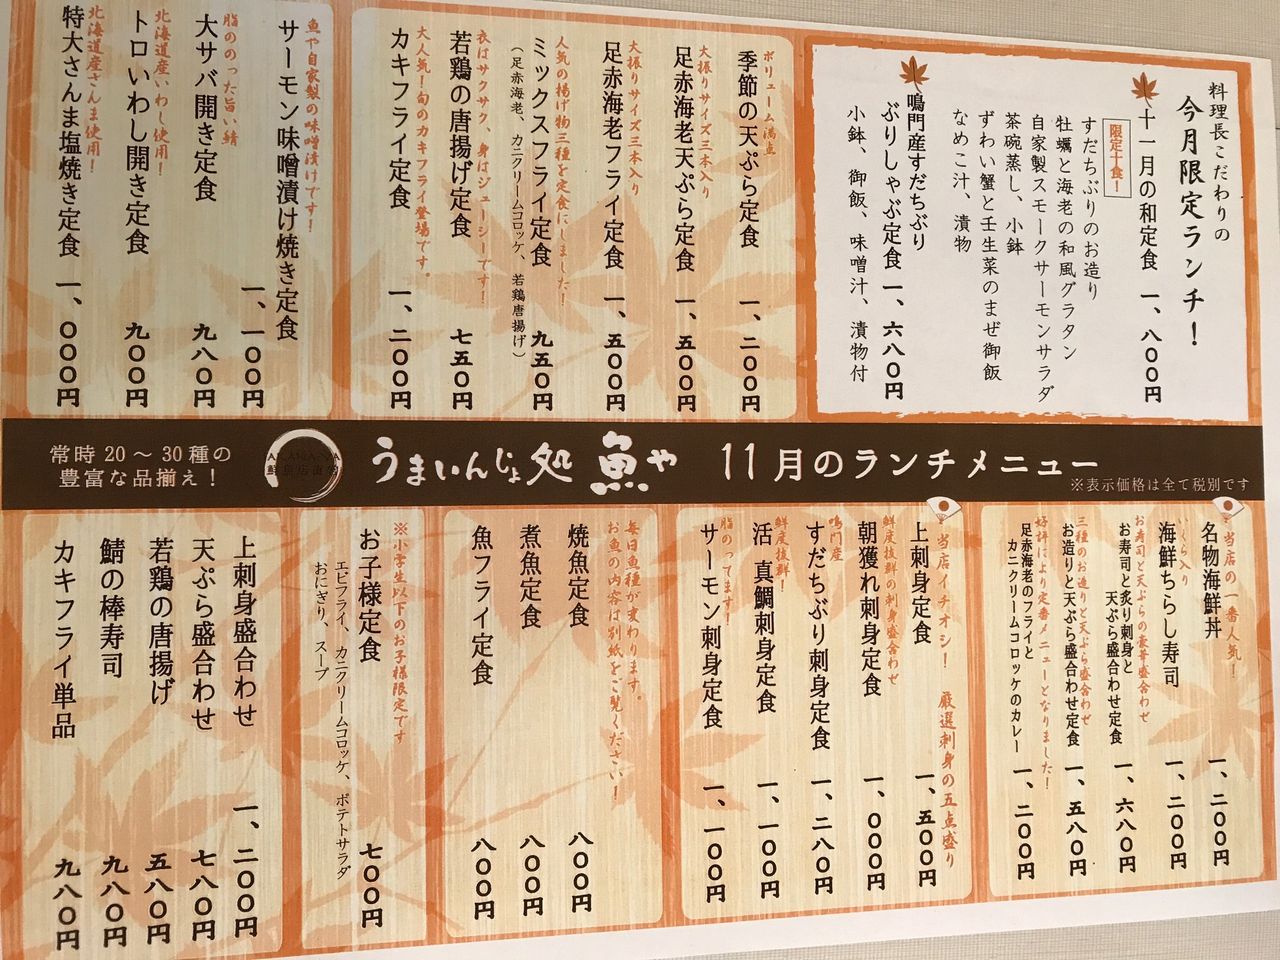 料理長こだわりの
今月限定ランチ！
十一月の和定食 一、八〇〇円
限定十食！
すだちぶりのお造り
牡蠣と海老の和風グラタン
自家製スモークサーモンサラダ
茶碗蒸し、小鉢
ずわい蟹と壬生菜のまぜ御飯
なめこ汁、漬物
鳴門産すだちぶり
ぶりしゃぶ定食 一、六八〇円
小鉢、御飯、味噌汁、漬物付
ボリューム満点
季節の天ぷら定食 一、二〇〇円
大振りサイズ三本入り
足赤海老天ぷら定食 一、五〇〇円
大振りサイズ三本入り
足赤海老フライ定食 一、五〇〇円
人気の揚げ物三種を定食にしました！
ミックスフライ定食 九五〇円
（足赤海老、カニクリームコロッケ、若鶏唐揚げ）
衣はサクサク、身はジューシーです！
若鶏の唐揚げ定食 七五〇円
大人気！旬のカキフライ登場です。
カキフライ定食 一、二〇〇円
魚や自家製の味噌漬けです！
サーモン味噌漬け焼き定食 一、一〇〇円
脂ののった旨い鯖
大サバ開き定食 九八〇円
北海道産いわし使用！
トロいわし開き定食 九〇〇円
北海道産さんま使用！
特大さんま塩焼き定食 一、〇〇〇円
常時20～30種の
豊富な品揃え！
うまいんじょ処 魚や 11月のランチメニュー
※表示価格は全て税別です
当店の一番人気！
名物海鮮丼 一、二〇〇円
いくら入り
海鮮ちらし寿司 一、二〇〇円
お寿司と天ぷらの豪華盛合わせ
お寿司と炙り刺身と
天ぷら盛合わせ定食 一、六八〇円
三種のお造りと天ぷら盛合わせ
お造りと天ぷら盛合わせ定食 一、五八〇円
好評により定番メニューとなりました！
足赤海老のフライと
カニクリームコロッケのカレー 一、二〇〇円
当店イチオシ！ 厳選刺身の五点盛り
上刺身定食 一、五〇〇円
鮮度抜群の刺身盛合わせ
朝獲れ刺身定食 一、〇〇〇円
鳴門産
すだちぶり刺身定食 一、二八〇円
鮮度抜群！
活 真鯛刺身定食 一、一〇〇円
脂のってます！
サーモン刺身定食 一、一〇〇円
毎日魚種が変わります。
お魚の内容は別紙をご覧ください！
焼魚定食 八〇〇円
煮魚定食 八〇〇円
魚フライ定食 八〇〇円
※小学生以下のお子様限定です
お子様定食 七〇〇円
エビフライ、カニクリームコロッケ、ポテトサラダ
おにぎり、スープ
上刺身盛合わせ 一、二〇〇円
天ぷら盛合わせ 七八〇円
若鶏の唐揚げ 五八〇円
鯖の棒寿司 九八〇円
カキフライ単品 九八〇円